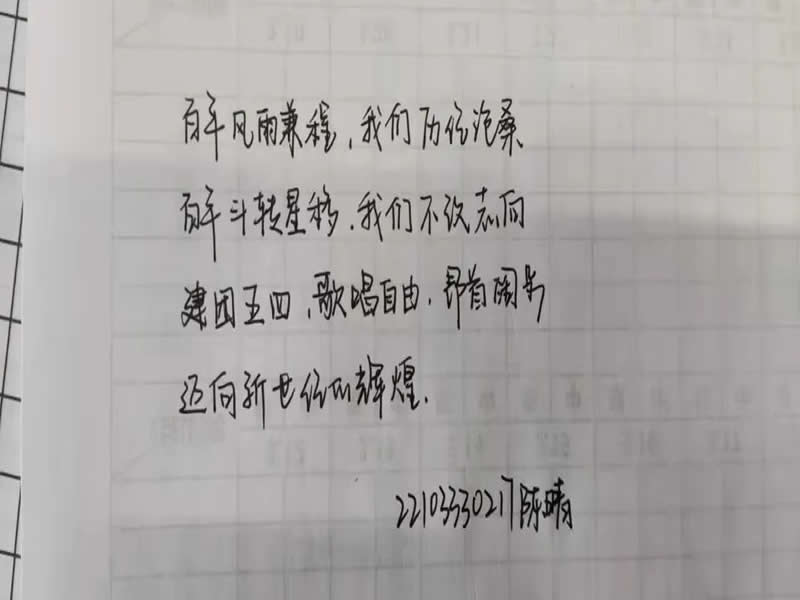 百年风雨兼程,我们历经沧桑
百年斗转星移,我们不改志向
建团五四,歌唱自由,昂首阔步
迈向新世纪的辉煌.
22103330217 陈晴